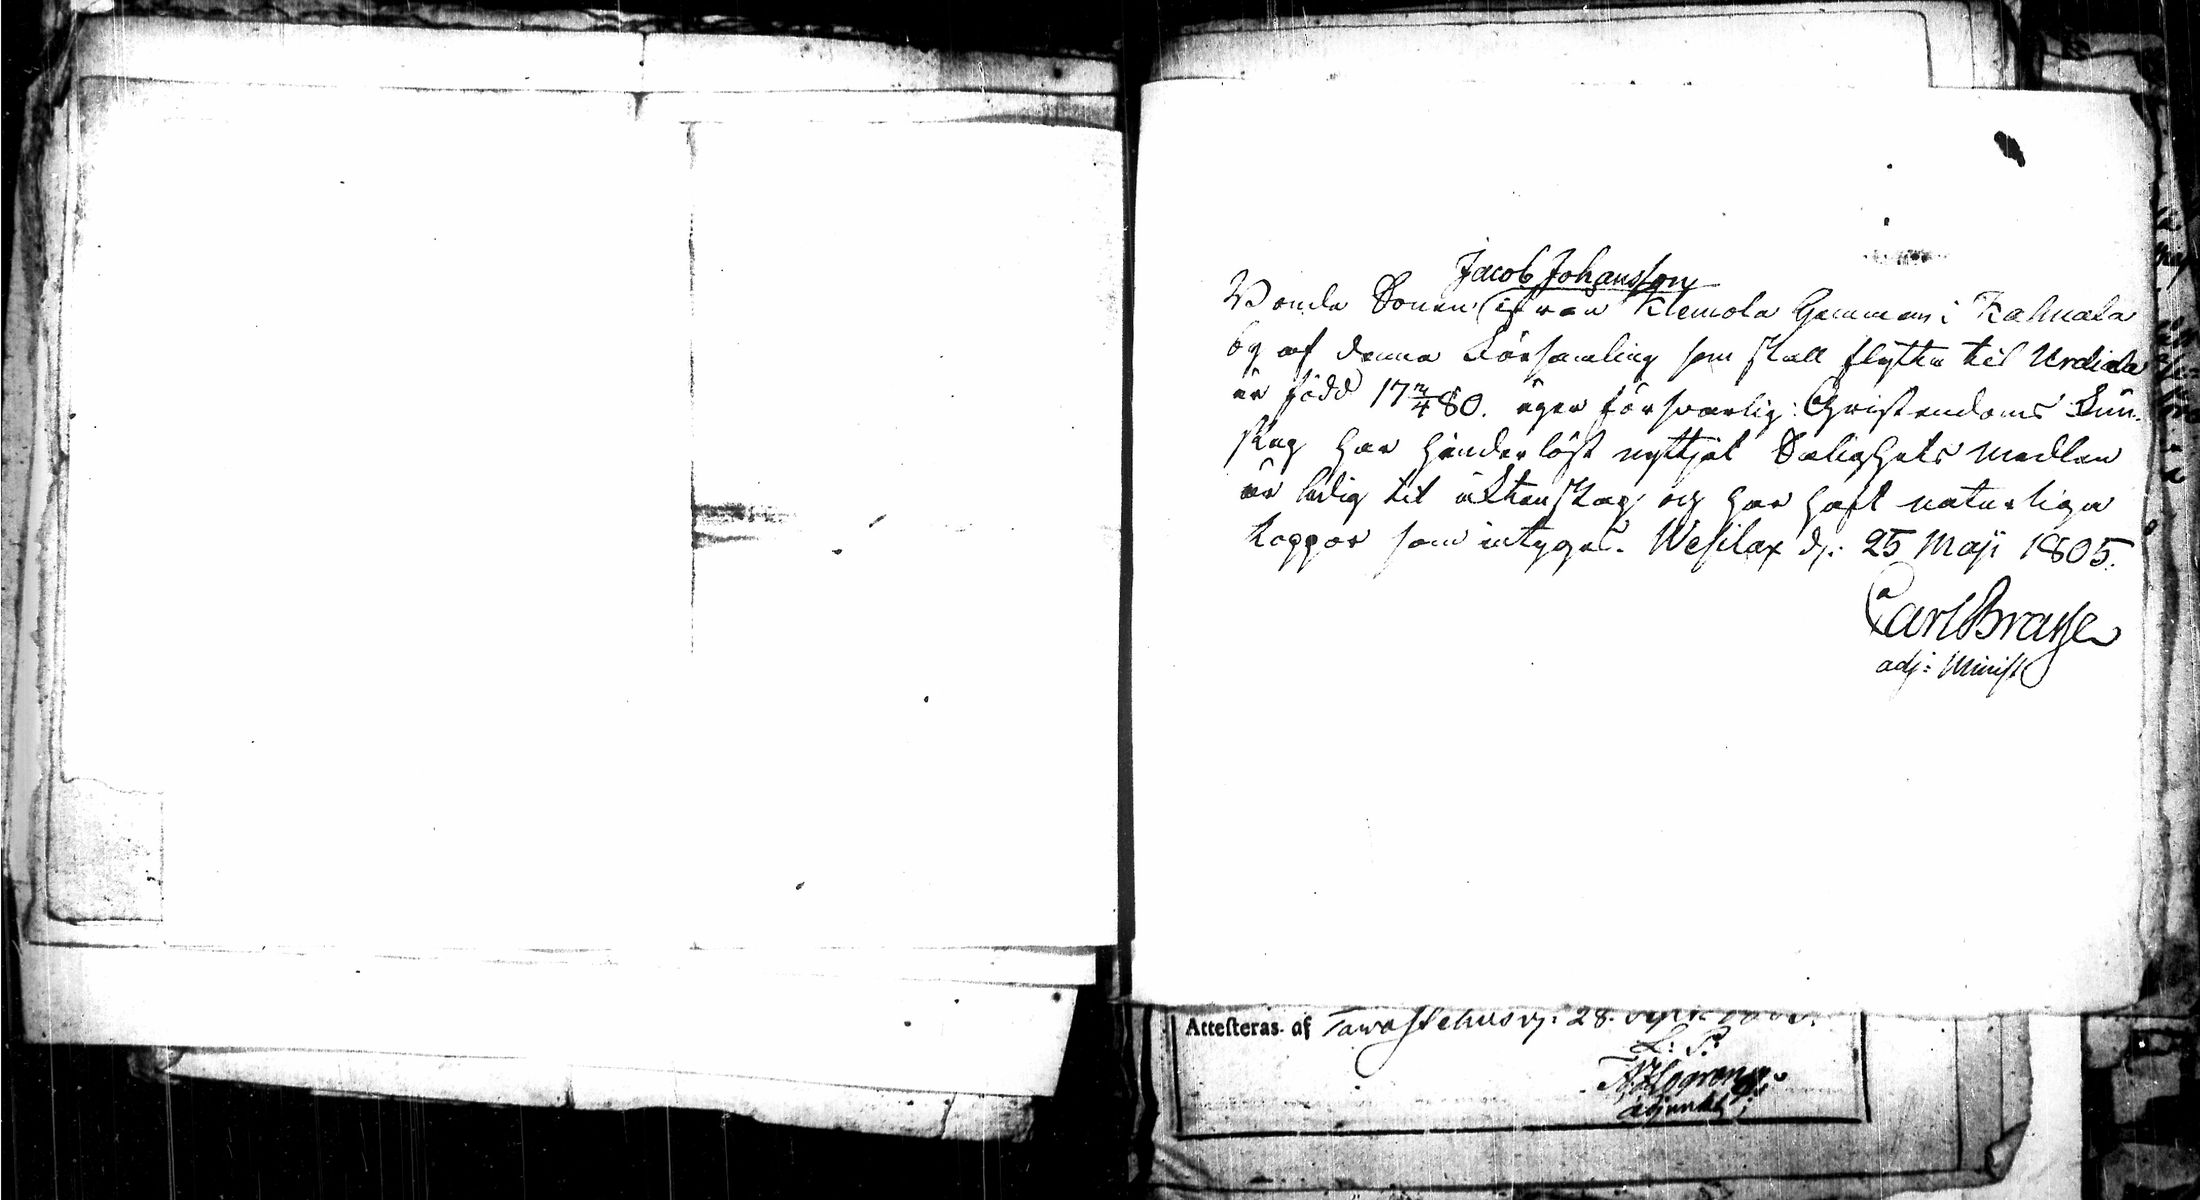 Jacob Johansson
Bonde Sonen ifrån Klemola Hemman i Kahnala
by af denna Församling som skall flytta till Urdiala
är född 17 2/4 80. äger förswarlig: Christendoms Kun-
skap har hinderlöst nyttjat Salighets medlen
är ledig til äktenskap och har haft naturliga
koppor som intygas. Wesilax d: 25 Maji 1805.
Carl Brasse
adj: Minist
Attesteras af Tawastehus d: 28.
L: S:
adjunct